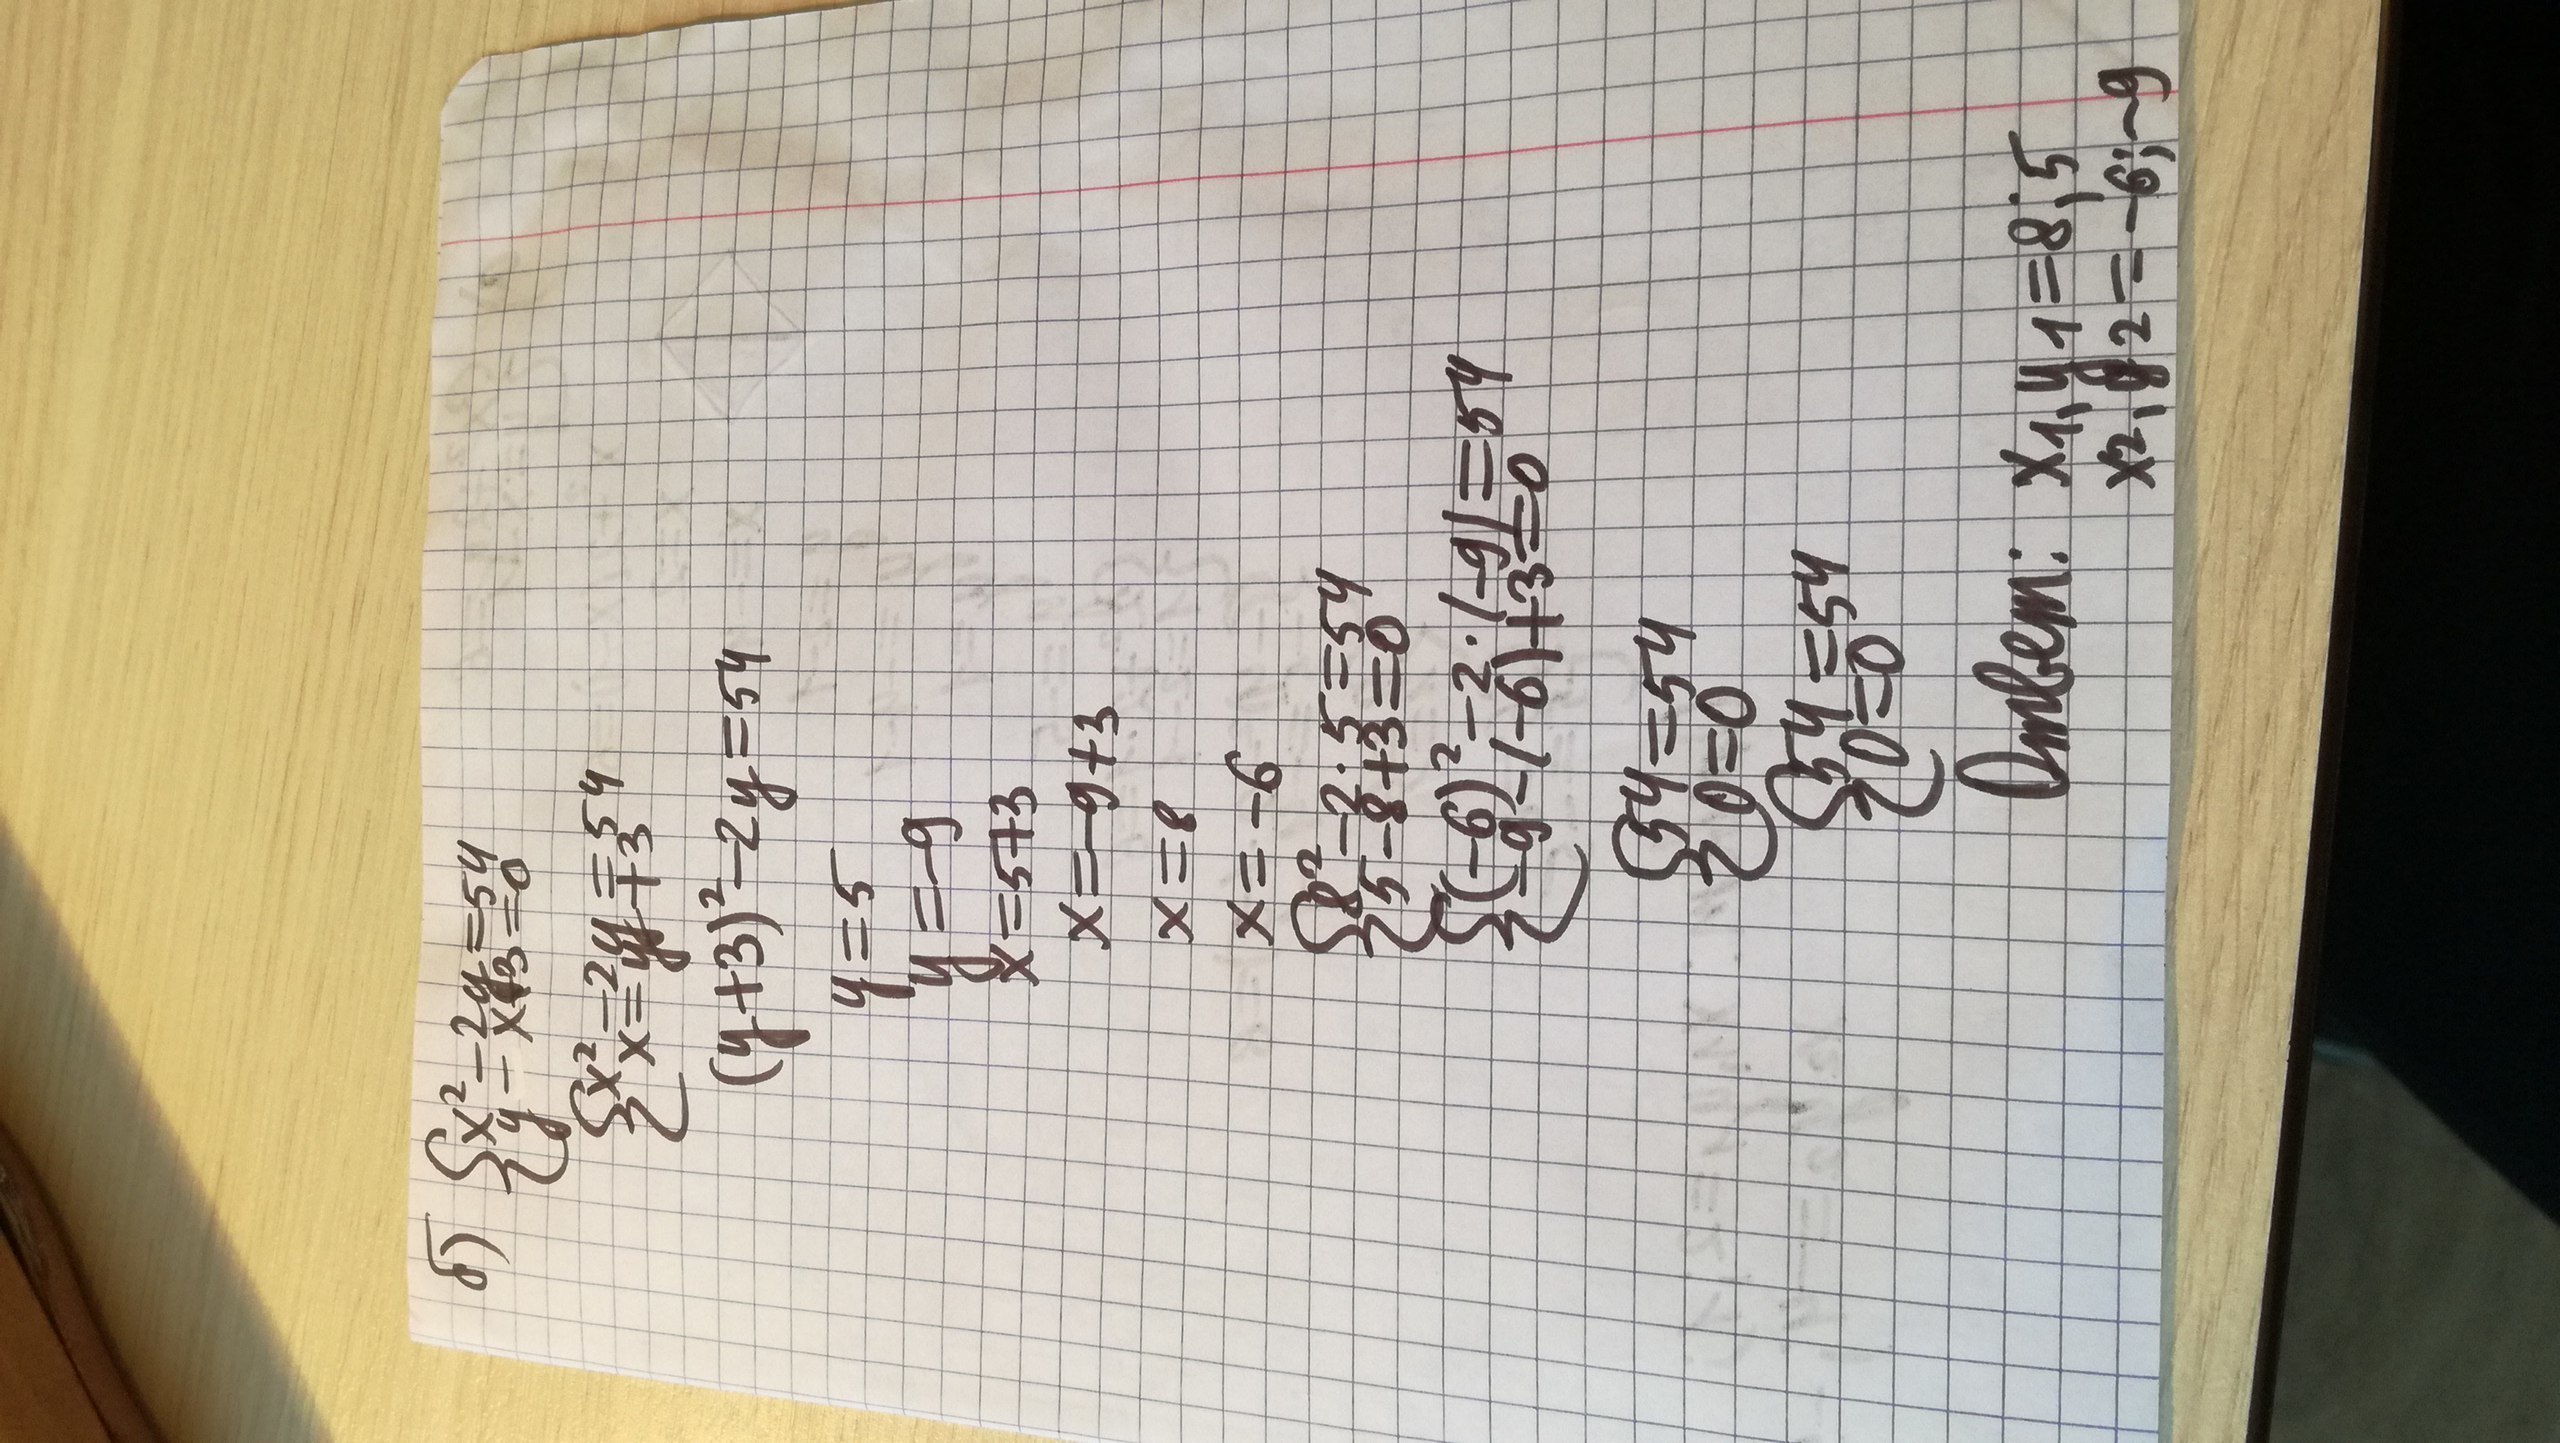 б) {x²-2y=54
y-x+3=0
{x²-2y=54
x=y+3
(y+3)²-2y=54
y=5
y=-9
x=5+3
x=-9+3
x=8
x=-6
{8²-2·5=54
5-8+3=0
{(-6)²-2·(-9)=54
-9-(-6)+3=0
{54=54
0=0
{54=54
0=0
Ответ: x1,y1=8;5
x2,y2=-6;-9